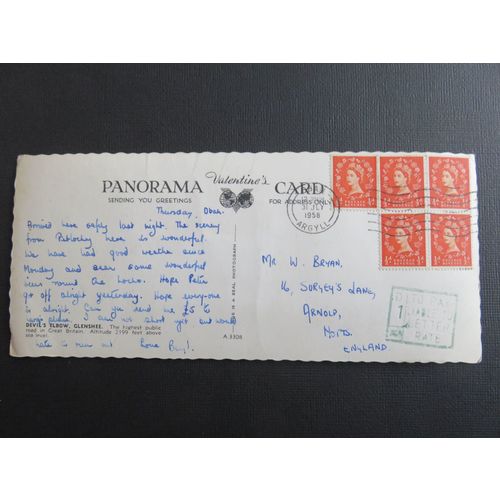 PANORAMA Valentine's CARD
SENDING YOU GREETINGS FOR ADDRESS ONLY
Thursday, Oban.
Arrived here safely last night. The scenery
from Pitlochry here is wonderful.
We have had good weather since
Monday and seen some wonderful
views round the Lochs. Hope Peter
got off alright yesterday. Hope everyone
is alright. Can you send me £5 to
DEVIL'S ELBOW, GLENSHEE. The highest public
road in Great Britain. Altitude 2199 feet above
sea level.
hate to run out Love
A 3308
IS A REAL PHOTOGRAPH
31 JLY
1958
ARGYLL
MR W. BRYAN,
16, SURGEY'S LANE,
ARNOLD,
NOTTS.
ENGLAND
LETTER
RATE